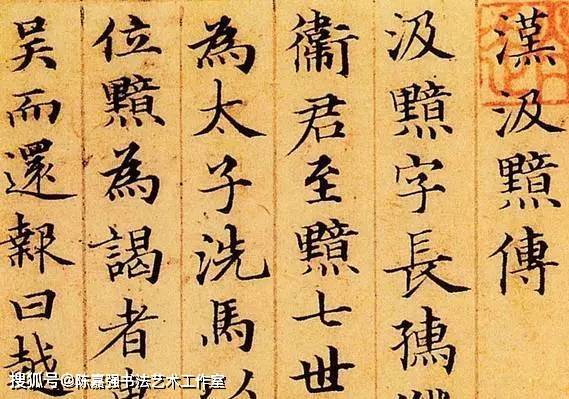 漢汲黯傳
汲黯字長孺
衛君至黯七世
為太子洗馬以
位黯為謁者
吴而還報曰越
搜狐号@陈嘉强书法艺术工作室